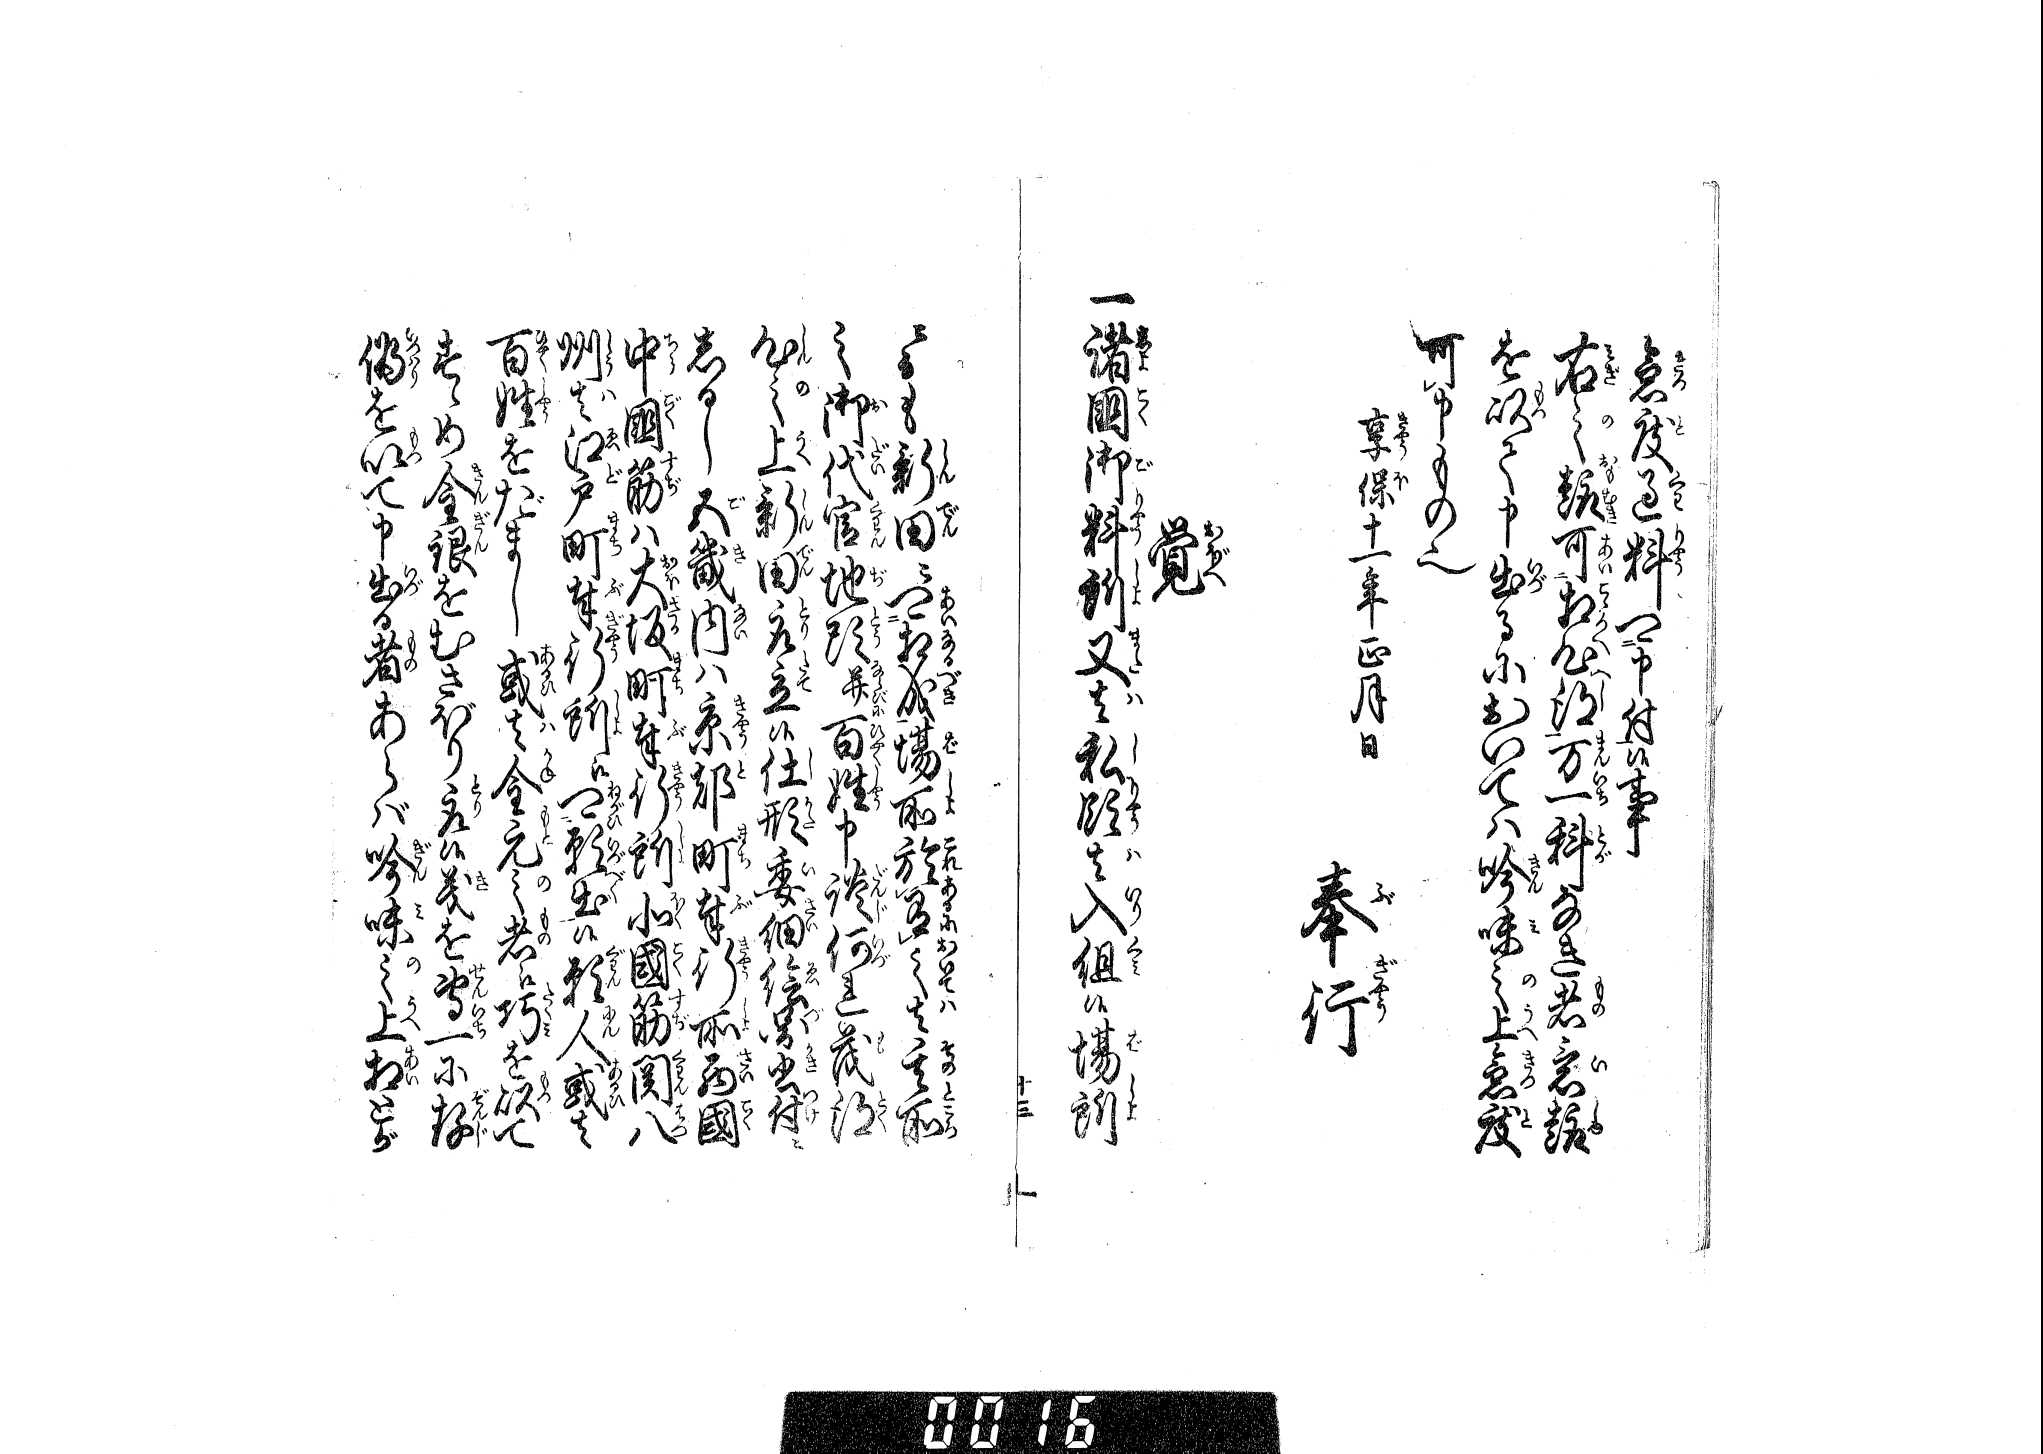 急度過料可申付候事
右之趣可相心得万一科なき者意趣
を以て申出るにおいてハ吟味之上急度
可申もの也
享保十一年正月日
奉行
覚
一諸国御料所又ハ私領ハ入組候場所
にても新田ニ可相成場所於有之ハ其所
之御代官地頭并百姓申談何れ茂得
心之上新田取立候仕形委細絵図書付ニ
しるし五畿内ハ京都町奉行所西国
中国筋ハ大坂町奉行所北国筋関八
州ハ江戸町奉行所江可願出候願人或ハ
百姓をだまし或ハ金元之者江巧を以て
すゝめ金銀をむさぼり取候義を専一に存
偽を以て申出る者あらバ吟味之上相とが
十三
0016